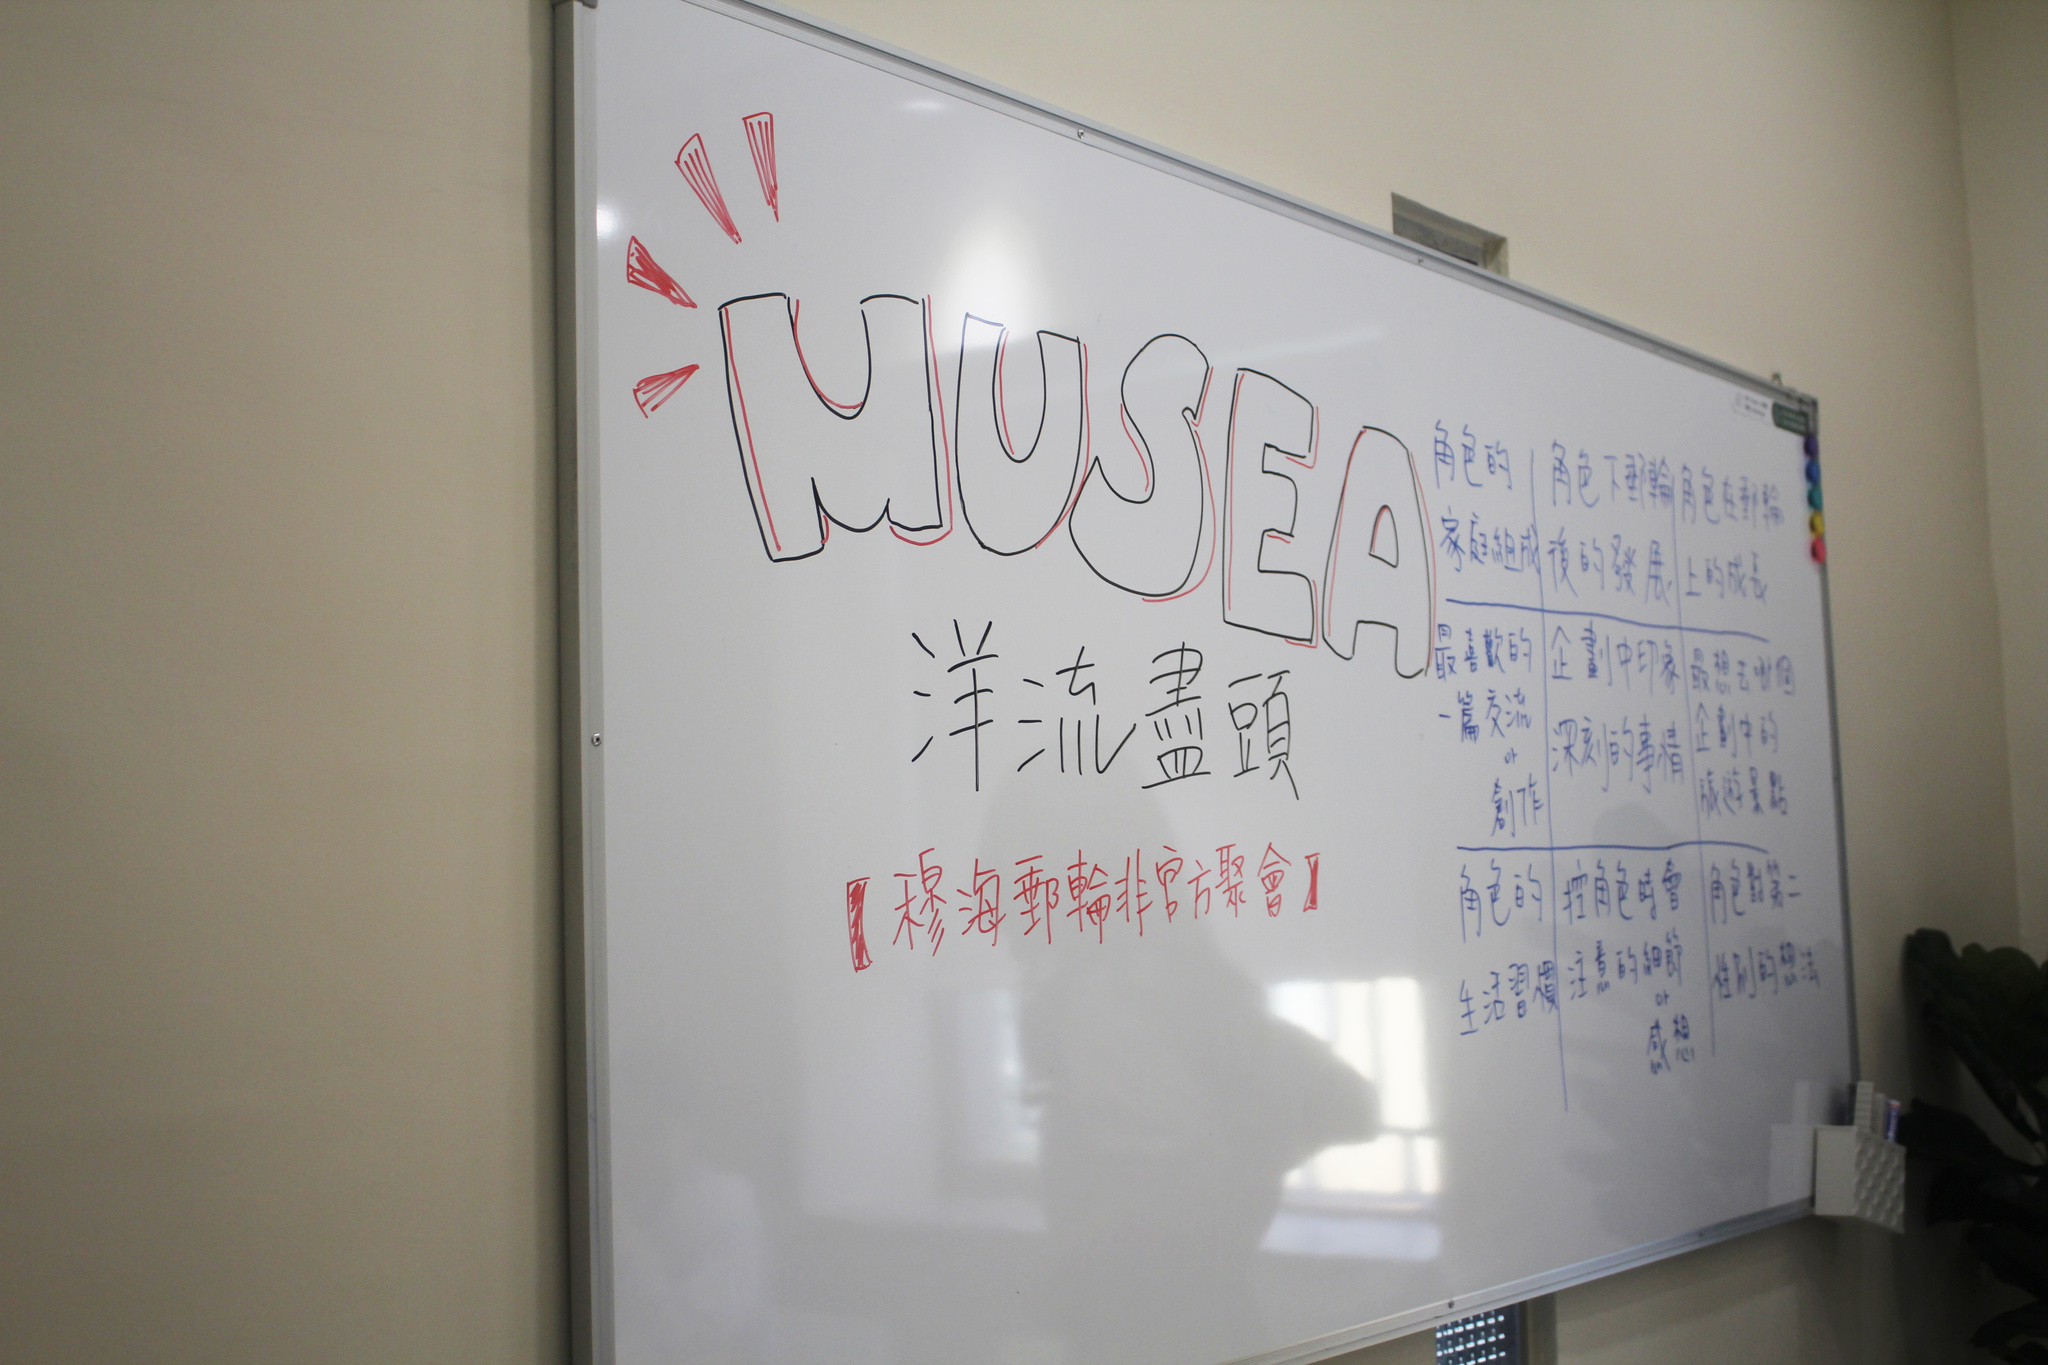 MUSEA
洋流盡頭
【穆海郵輪非官方聚會】
角色的
家庭組成
角色下郵輪
後的發展
角色在郵輪
上的成長
最喜歡的
一篇交流
or
創作
企劃中印象
深刻的事情
最想去哪個
企劃中的
旅遊景點
角色的
生活習慣
控角色時會
注意的細節
or
感想
角色對第二
性別的想法